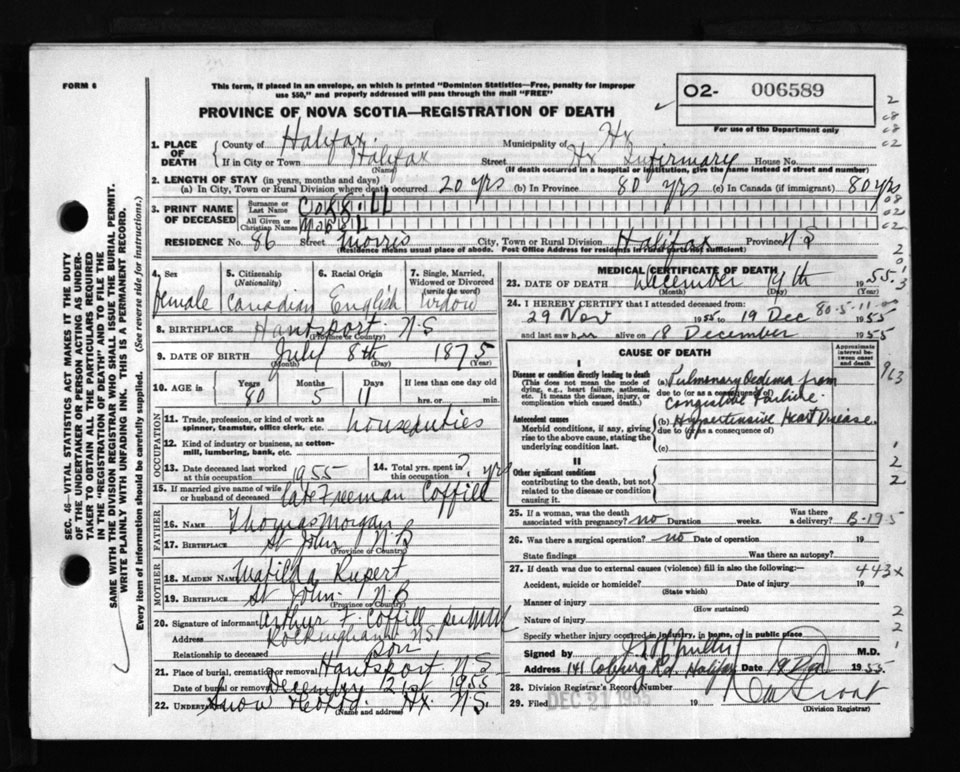 FORM 6
This form, if placed in an envelope, on which is printed "Dominion Statistics—Free, penalty for improper
use $50," and properly addressed will pass through the mail "FREE"
PROVINCE OF NOVA SCOTIA—REGISTRATION OF DEATH
O2- 006589
For use of the Department only
SEC. 46—VITAL STATISTICS ACT MAKES IT THE DUTY
OF THE UNDERTAKER OR PERSON ACTING AS UNDER-
TAKER TO OBTAIN ALL THE PARTICULARS REQUIRED
IN THE "REGISTRATION OF DEATH" AND TO FILE THE
SAME WITH THE DIVISION REGISTRAR WHO SHALL ISSUE THE BURIAL PERMIT.
WRITE PLAINLY WITH UNFADING INK. THIS IS A PERMANENT RECORD.
Every item of information should be carefully supplied. (See reverse side for instructions.)
1. PLACE OF DEATH County of Halifax. Municipality of Hx
If in City or Town Halifax (Name) Street Hx Infirmary House No.
(If death occurred in a hospital or institution, give the name instead of street and number)
2. LENGTH OF STAY (in years, months and days)
(a) In City, Town or Rural Division where death occurred 20 yrs (b) In Province 80 yrs (c) In Canada (if immigrant) 80 yrs
3. PRINT NAME OF DECEASED Surname or Last Name
All Given or Christian Names
RESIDENCE No. 86 Street Morris City, Town or Rural Division Halifax Province N S
(Residence means usual place of abode. Post Office Address for residents in rural parts not sufficient)
4. Sex Female
5. Citizenship (Nationality) Canadian
6. Racial Origin English
7. Single, Married, Widowed or Divorced (write the word) Widow
8. BIRTHPLACE Hantsport N.S (Province or Country)
9. DATE OF BIRTH July 8th 1875 (Month) (Day) (Year)
10. AGE in Years 80 Months 5 Days 11 If less than one day old hrs. or min.
OCCUPATION
11. Trade, profession, or kind of work as spinner, teamster, office clerk, etc. houseduties
12. Kind of industry or business, as cotton-mill, lumbering, bank, etc.
13. Date deceased last worked at this occupation 1955
14. Total yrs. spent in this occupation ? yrs
15. If married give name of wife or husband of deceased late Freeman Coffill
FATHER
16. NAME Thomas Morgan
17. BIRTHPLACE St John N.B (Province or Country)
MOTHER
18. MAIDEN NAME Matilda Rupert
19. BIRTHPLACE St John. N.B (Province or Country)
20. Signature of informant Arthur F. Coffill
Address Rockingham N.S.
Relationship to deceased son
21. Place of burial, cremation or removal Hantsport N.S
Date of burial or removal December 21st 1955
22. UNDERTAKER Snow & Co Ltd. Hx. N.S. (Name and address)
MEDICAL CERTIFICATE OF DEATH
23. DATE OF DEATH December 19th 1955. (Month) (Day) (Year)
24. I HEREBY CERTIFY that I attended deceased from: 80-5-11
29 Nov 1955 to 19 Dec 1955
and last saw her alive on 18 December 1955
CAUSE OF DEATH
Approximate interval between onset and death
I
Disease or condition directly leading to death
(This does not mean the mode of dying, e.g., heart failure, asthenia, etc. It means the disease, injury, or complication which caused death.)
(a) Pulmonary Oedema from
due to (or as a consequence of)
Congestive Failure.
Antecedent causes
Morbid conditions, if any, giving rise to the above cause, stating the underlying condition last.
(b) Hypertensive Heart Disease.
due to (or as a consequence of)
(c)
II
Other significant conditions
contributing to the death, but not related to the disease or condition causing it.
25. If a woman, was the death associated with pregnancy? no Duration weeks. Was there a delivery? B-19 5
26. Was there a surgical operation? no Date of operation 19
State findings Was there an autopsy?
27. If death was due to external causes (violence) fill in also the following:— 443x
Accident, suicide or homicide? (State which) Date of injury 19
Manner of injury (How sustained)
Nature of injury
Specify whether injury occurred in industry, in home, or in public place
Signed by M.D.
Address 141 Coburg Rd. Halifax Date 19 Dec 1955.
28. Division Registrar's Record Number
29. Filed DEC 21 1955 19 (Division Registrar)